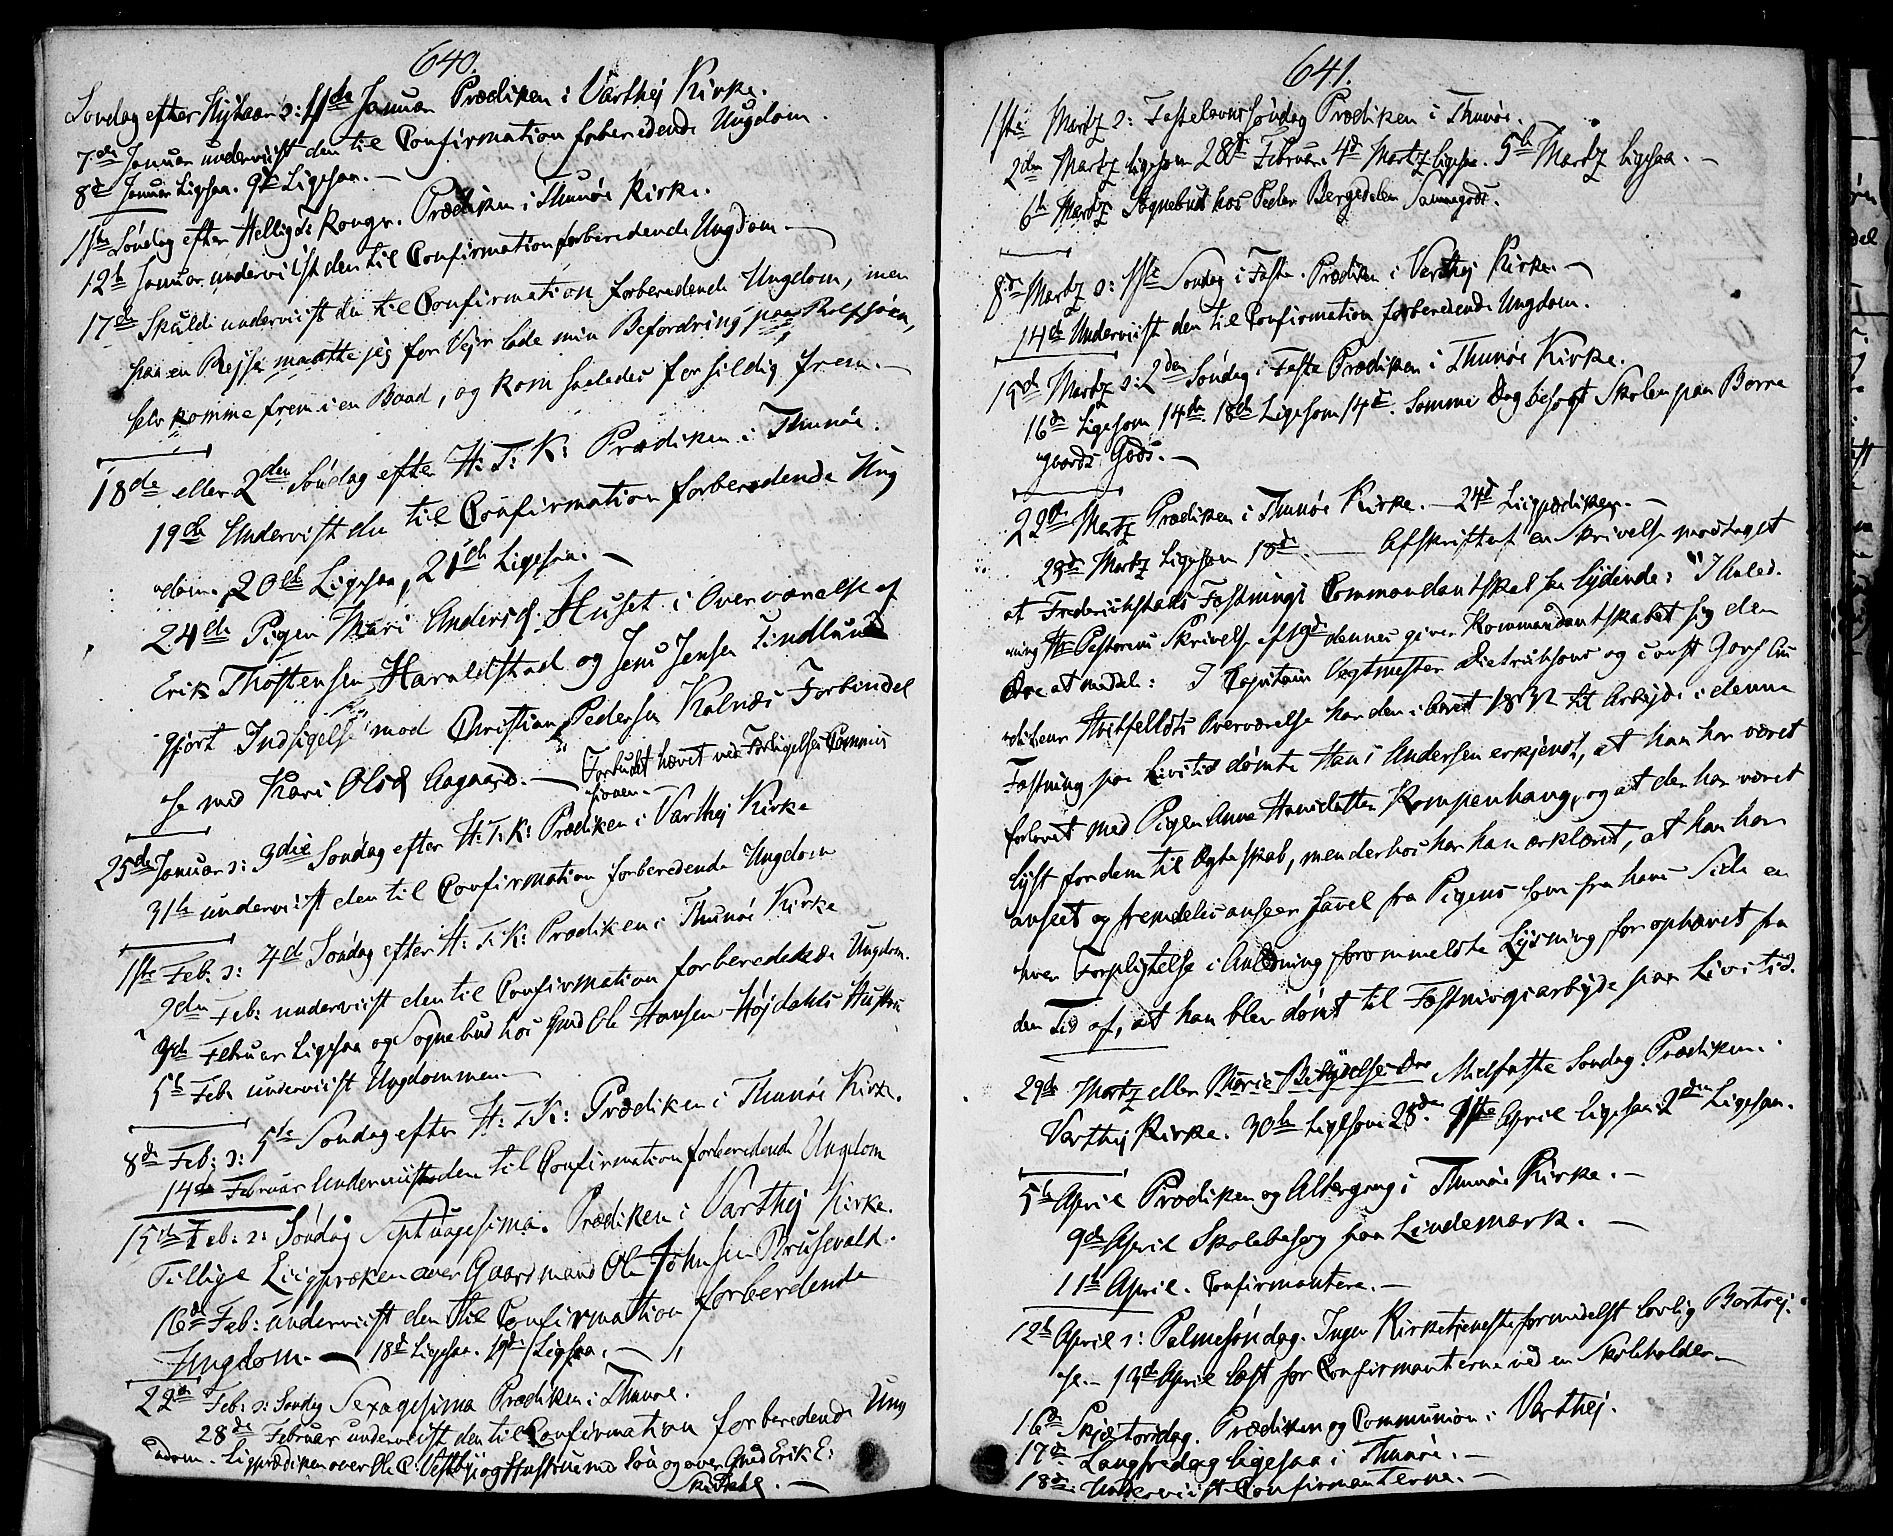 640.
Søndag efter Nytaar ɔ: 4de Januar Prædiken i Varthej Kirke.
7de Januar underviist den til Confirmation forberedende Ungdom.
8de Januar Ligesaa. 9de Ligesaa. —
11te Søndag efter Hellig 3 Kongr. Prædiken i Thunøe Kirke.
12te Januar underviist den til Confirmation forberedende Ungdom. —
17de Skulde underviist den til Confirmation forberedende Ungdom, men
paa en Rejse maatte jeg for Vejr lade min Befordring paa Rolfsøen,
selv komme frem i en Baad, og kom saaledes for sildig frem. —
18de eller 2den Søndag efter H: T: K: Prædiken i Thunøe.
19de Underviist den til Confirmation forberedende Ung
dom. 20de Ligesaa, 21de Ligesaa. —
24de Pigen Mari Andersd. Huset i Overværelse af
Erik Thostensen Haraldstad og Jens Jensen Lindlund
gjort Indsigelse mod Christian Pedersen Kalnæs Forbindel
se med Kari Olsd Aagaard. — Forbudet hævet ved Forligelses Commis
sionen. —
25de Januar ɔ: 3die Søndag efter H: T: K: Prædiken i Varthej Kirke
31te underviist den til Confirmation forberedende Ungdom
1ste Feb: ɔ: 4de Søndag efter H: T: K: Prædiken i Thunøe Kirke
2den Feb: underviist den til Confirmation forberedende Ungdom.
3de Februar Ligesaa og Sognebud hos Gmd Ole Hansen Højdahls Hustru
5te Feb. underviist Ungdommen —
8de Feb: ɔ: 5te Søndag efter H: T: K: Prædiken i Thunøe Kirke.
14de Februar Underviist den til Confirmation forberedende Ungdom
15de Feb: ɔ: Søndag Septuagesima. Prædiken i Varthej Kirke.
Tillige Liigpræken over Gaardmand Ole Johnsen Brusevald.
16de Feb: underviist den til Confirmation forberdende
Ungdom. — 18de Ligesaa. 19de Ligesaa. —
22de Feb: ɔ: Søndag Sexagesima Prædiken i Thunøe.
28de Februar underviist den til Confirmation forberedende Ung
dom. Ligprædiken over Ole C. Vestby og Hustrue og over Gmd Erik E:
641.
1ste Martz ɔ: Fastelavns søndag Prædiken i Thunøe.
2den Martz ligesom 28de Februar. 4de Martz ligesaa. 5te Martz ligesaa. —
6te Martz Sognebud hos Peder Bergedelen
8de Martz ɔ: 1ste Søndag i Faste. Prædiken i Varthej Kirke. —
14de Underviist den til Confirmation forberedende Ungdom.
15de Martz ɔ: 2den Søndag i Faste Prædiken i Thunøe Kirke.
16de Ligesom 14de. 18de Ligesom 14de. Samme Dag besøgt Skolen paa Borre
gaards Gods. —
22de Martz Prædiken i Thunøe Kirke. — 24de Liigprædiken. —
23de Martz Ligesom 18de. — Afskrift af en Skrivelse modtaget
at Frederikstads Fæstnings Commandantskal saa lydende: "I Anled-
ning Hr Pastorens Skrivelse af 19de dennes giver Kommandantskabet sig den
Ære at meddele: I Capitain Vagtmester Dietrichsons og
Hvitfeldts Overværelse har den i Aaret 1832 til Arbejde i denne
Fæstning paa Livstid dømte Hans Andersen erkjendt, at han har været
forlovet med Pigen Anna Hansdatter Kompenhaug, og at der har været
lyst for dem til Ægteskab, men derhos har han erklæret, at han har
anseet og fremdeles anseer saavel fra Pigens som fra hans Side en
hver Forpligtelse i Anledning forommeldte Lysning for ophævet fra
den Tid af, at han blev dømt til Fæstningsarbejde paa Livstid.
29de Martz eller Mariæ Bebudelses Dag Midfaste Søndag. Prædiken i
Varthej Kirke. 30te Ligesom 28de. 1ste April ligesaa 2den Ligesaa.
5te April Prædiken og Altergang i Thunøe Kirke. —
9de April Skolebesøg paa Lindemark. —
11te April. Confirmantere. —
12te April ɔ: Palmesøndag. Ingen Kirketjeneste formedelst lovlig Bortrej-
se. — 13de April læst for Confirmanterne ved en Skoleholder. —
16de Skjærtorsdag. Prædiken og Communion i Varthej.
17de Langfredag ligesaa i Thunøe. —
18de Underviist Confirmanterne. —